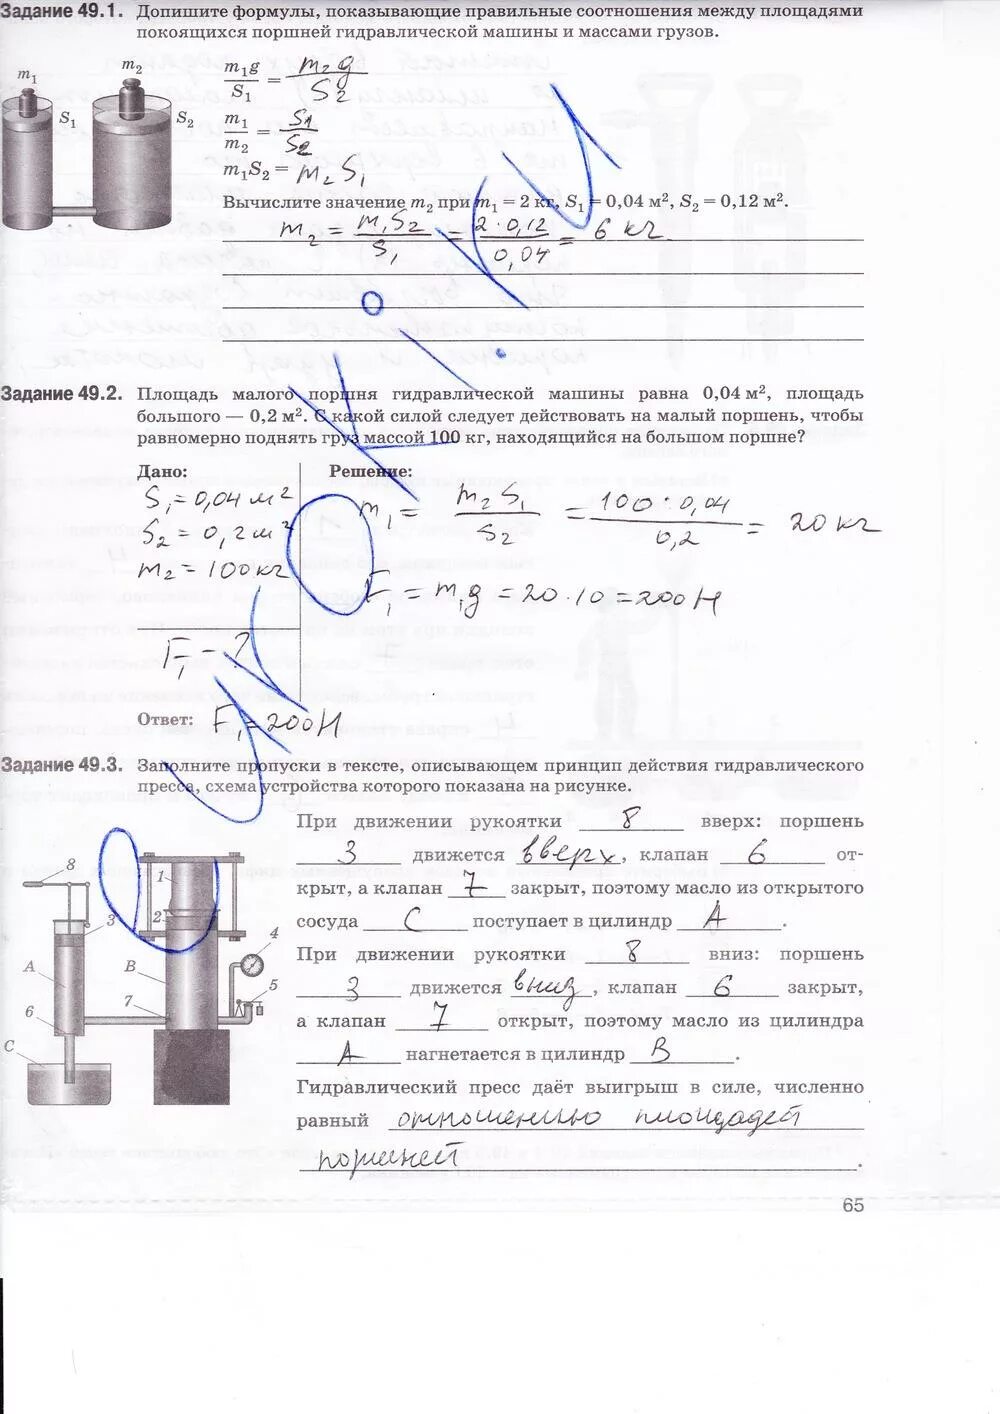 Задание 49.1. Допишите формулы, показывающие правильные соотношения между площадями
покоящихся поршней гидравлической машины и массами грузов.
m₁ m₂ S₁ S₂
m₁g/S₁ = m₂g/S₂
m₁/m₂ = S1/S₂
m₁S₂ = m₂S₁
Вычислите значение m₂ при m₁ = 2 кг, S₁ = 0,04 м², S₂ = 0,12 м².
m₂ = m₁S₂/S₁ = 2·0,12/0,04 = 6 кг
Задание 49.2. Площадь малого поршня гидравлической машины равна 0,04 м², площадь
большого — 0,2 м². С какой силой следует действовать на малый поршень, чтобы
равномерно поднять груз массой 100 кг, находящийся на большом поршне?
Дано: Решение:
S₁ = 0,04 м²
S₂ = 0,2 м²
m₂ = 100 кг
F₁ - ?
m₁ = m₂S₁/S₂ = 100·0,04/0,2 = 20 кг
F₁ = m₁g = 20·10 = 200 Н
Ответ: F₁ = 200 Н
Задание 49.3. Заполните пропуски в тексте, описывающем принцип действия гидравлического
пресса, схема устройства которого показана на рисунке.
При движении рукоятки 8 вверх: поршень
3 движется вверх, клапан 6 от-
крыт, а клапан 7 закрыт, поэтому масло из открытого
сосуда C поступает в цилиндр A.
При движении рукоятки 8 вниз: поршень
3 движется вниз, клапан 6 закрыт,
а клапан 7 открыт, поэтому масло из цилиндра
A нагнетается в цилиндр B.
Гидравлический пресс даёт выигрыш в силе, численно
равный отношению площадей
поршней.
8 1 2 3 4 A B 5 7 6 C
65